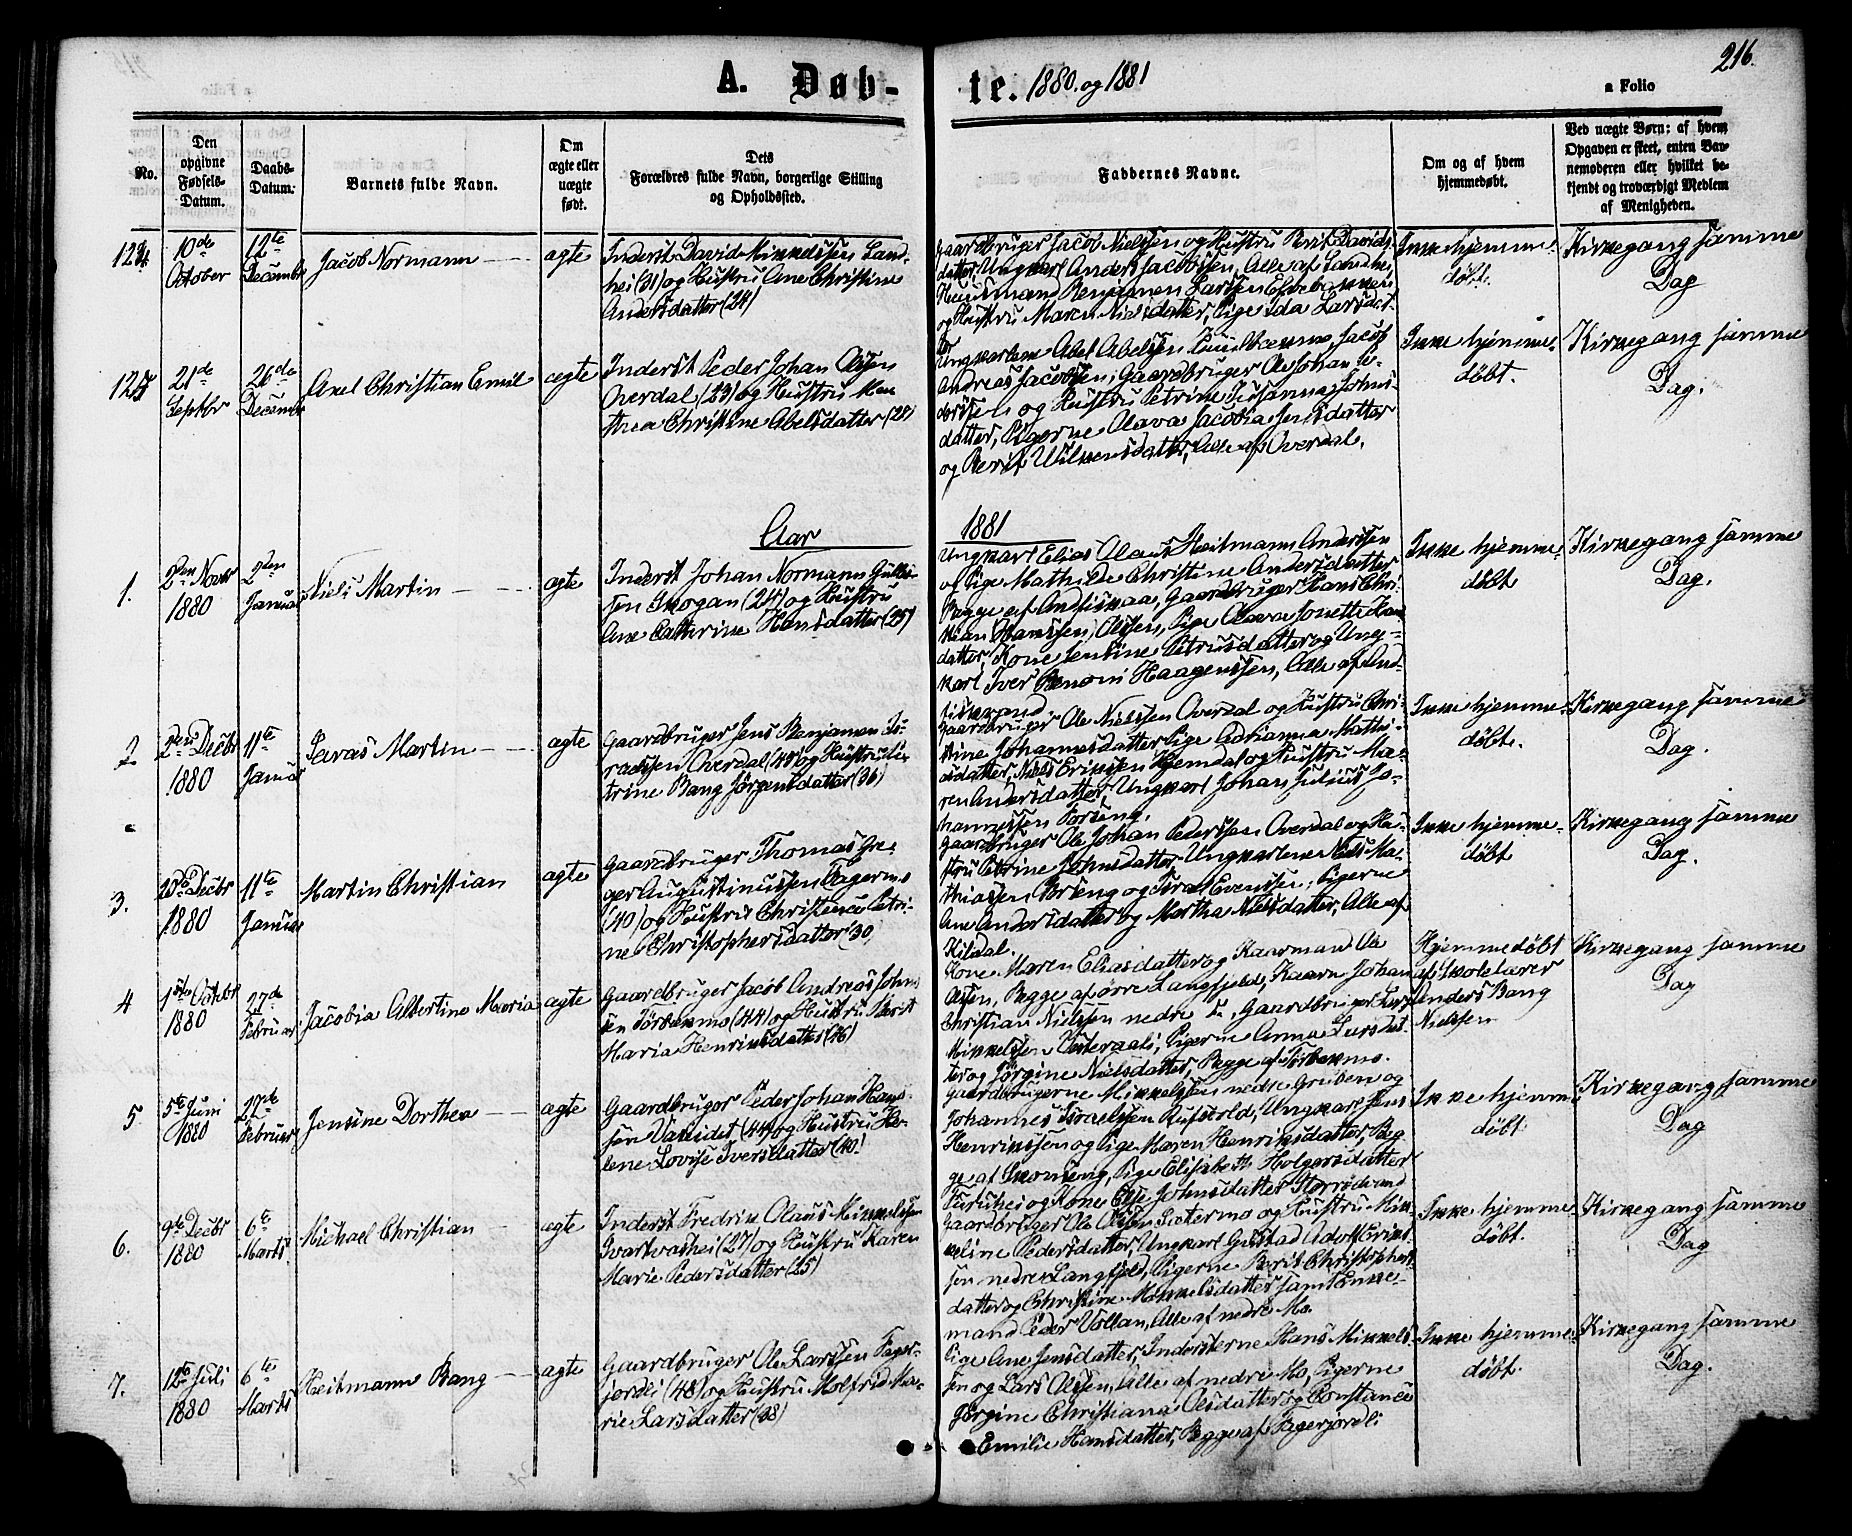 216.
A. Døb-
te. 1880. og 1881
a Folio
No.
Den
opgivne
Fødsels-
Datum.
Daabs-
Datum.
Barnets fulde Navn.
Om
ægte eller
uægte
født.
Dets
Forældres fulde Navn, borgerlige Stilling
og Opholdssted.
Faddernes Navne.
Om og af hvem
hjemmedøbt.
Ved uægte Børn; af hvem
Opgaven er skeet, enten Bar-
nemoderen eller hvilket be-
kjendt og troværdigt Medlem
af Menigheden.
124
10de
October
12te
Decembr
Jacob Normann
ægte
Inderst David Mikkelssen Land-
hei (31) og Hustru Ane Christine
Andersdatter (24)
Gaardbruger Jacob Nielssen og Hustru Berit Davids-
datter, Ungkarl Anders Jacobssen, Alle af Landhei,
Huusmand Benjamen Larssen
og Hustru Maren Nielsdatter, Pige Ida Larsdat-
ter
Ikke hjemme-
døbt.
Kirkegang samme
Dag
125
21de
Septbr
26de
Decembr
Axel Christian Emil
ægte
Inderst Peder Johan Olssen
Overdal (23) og Hustru Mar
threa Christine Abelsdatter (28)
Ungkarlene Abel Abelssen Jacob
Andreas Jacobssen, Gaardbruger Ole Johan Pe-
derssen og Hustru Petrine Susanna Johns-
datter, Pigerne Olava Jacobia Jensdatter
og Berit Wilkensdatter, Alle af Overdal.
Ikke hjemme-
døbt.
Kirkegang samme
Dag.
Aar
1881
1.
2den Novbr
1880
2den
Januar
Niels Martin
ægte
Inderst Johan Normann Gullik-
sen Skogan (24) og Hustru
Ane Cathrine Hansdatter (25)
Ungkarl Elias Olaus Heitmann Anderssen
og Pige Mathilde Christine Andersdatter
Begge af Andfiskaa, Gaardbruger Hans Chri-
stian Hanssen, Olssen, Pige Olava Jonette Han
datter, Kone Jensine Petrusdatter og Ung-
karl Iver Benoni Haagenssen, Alle af And-
fiskvand.
Ikke hjemme-
døbt
Kirkegang samme
Dag.
2
2den Decbr
1880
11te
Januar
Servas Martin
ægte
Gaardbruger Jens Benjamen Is-
raelssen Overdal (48) og Hustru Pe-
trine Bang Jörgensdatter (36)
Gaardbruger Ole Nielssen Overdal og Hustru Chri-
stine Johannesdatter, Pige Adrianna Mathi-
asdatter, Niels Erikssen Hjemdal og Hustru Ma-
ren Andersdatter, Ungkarl Johan Julius Jo-
hannessen Forseng.
Ikke hjemme-
døbt.
Kirkegang samme
Dag.
3.
20de Decbr
1880
11te
Januar
Martin Christian
ægte
Gaardbruger Thomas Gre-
ger Augustinussen Fagermo
(40) og Hustru Christence Petri-
ne Christophersdatter 30,
Gaardbruger Ole Johan Pederssen Overdal og Hu-
stru Petrine Johnsdatter, Ungkarlene Niels Ma-
thiassen Forseng og Israel Evenssen, Pigerne
Ane Andersdatter og Martha Nielsdatter, Alle af
Kildal.
Ikke hjemme-
døbt
Kirkegang samme
Dag.
4
1ste Octobr
1880
27de
Februar
Jacobia Albertine Maria
ægte
Gaardbruger Jacob Andreas Johns
sen Törbekmo (44) og Hustru Berit
Maria Henriksdatter (46)
Kone Maren Eliasdatter og Kaarmand Ole
Olssen, Begge af øvre Langfjeld, Kaarm Johan
Christian Nielssen nedre, Gaardbruger Lars
Mikkelssen Vesteraali, Pigerne Anna Larsdat-
ter og Jörgine Nielsdatter, Begge af Törbekmo.
Hjemmedøbt
af Skolelærer
Anders Bang
Nielssen
Kirkegang samme
Dag
5.
5te Juni
1880
27de
Februar
Jensine Dorthea
ægte
Gaardbruger Peder Johan Hans-
sen (44) og Hustru He-
lene Lovise Iversdatter (40)
Gaardbrugerne Mikkelssen nedre Gruben og
Johannes Israelssen, Ungkarl Jens
Henrikssen og Pige Maren Henriksdatter, Beg
ge af Skonseng, Pige Elisabeth Holgersdatter
Furuhei og Kone Else Johnsdatter Storstrand
Ikke hjemme-
døbt.
Kirkegang samme
Dag
6.
9de Decbr
1880
6te
Marts
Michael Christian
ægte
Inderst Fredrik Olaus Mikkelssen
Svartvashei (27) og Hustru Karen
Marie Pedersdatter (25)
Gaardbruger Ole Olssen Sætermo og Hustru Mik-
keline Pedersdatter, Ungkarl Gustad Adolf Eriks-
sen nedre Langfjeld, Pigerne Berit Christophers-
datter og Christine Mikkelsdatter samt Enke-
mand Peder Vollan, Alle af nedre Mo.
Ikke hjemme-
døbt.
Kirkegang samme
Dag
7.
12te Juli
1880
6te
Marts
Heitmann Bang
ægte
Gaardbruger Ole Larssen Fager-
jordli (48) og Hustru Molfrid Ma-
rie Larsdatter (38)
Pige Ane Jensdatter, Indersterne Hans Mikkels-
sen og Lars Olssen, Alle af nedre Mo, Pigerne
Jörgine Christiana Olsdatter og Constance
Emilie Hansdatter, Begge af Fagerjordli
Ikke hjemme-
døbt.
Kirkegang samme
Dag.